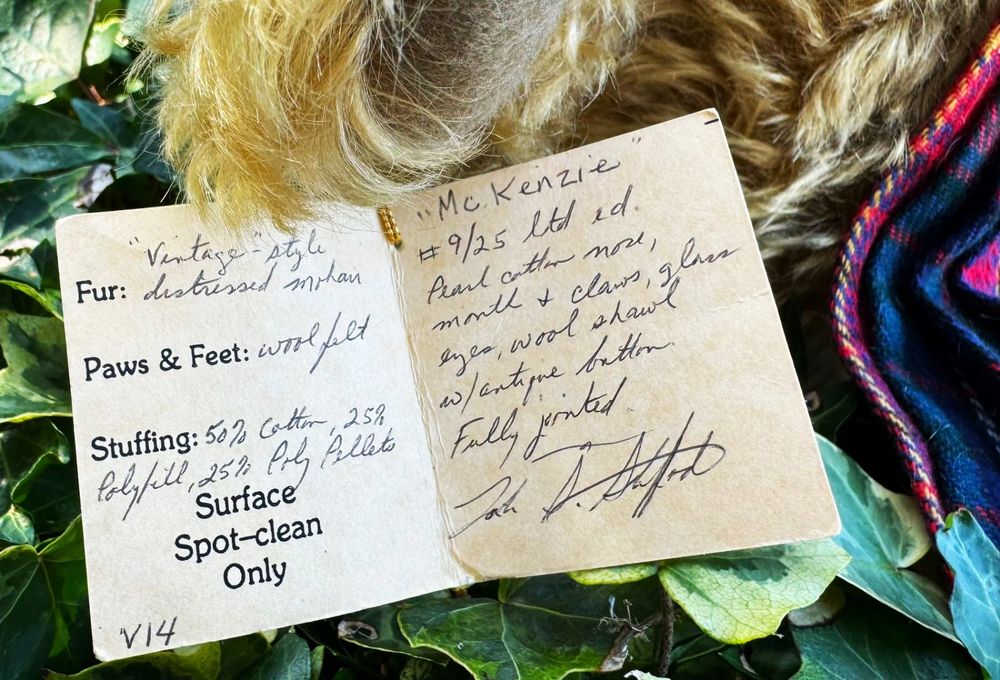 "Vintage"-style
Fur: distressed mohair
Paws & Feet: wool felt
Stuffing: 50% Cotton, 25%
Polyfill, 25% Poly Pellets
Surface
Spot-clean
Only
V14
"McKenzie"
#9/25 ltd ed.
Pearl cotton nose,
mouth & claws, glass
eyes, wool shawl
w/antique button.
Fully jointed